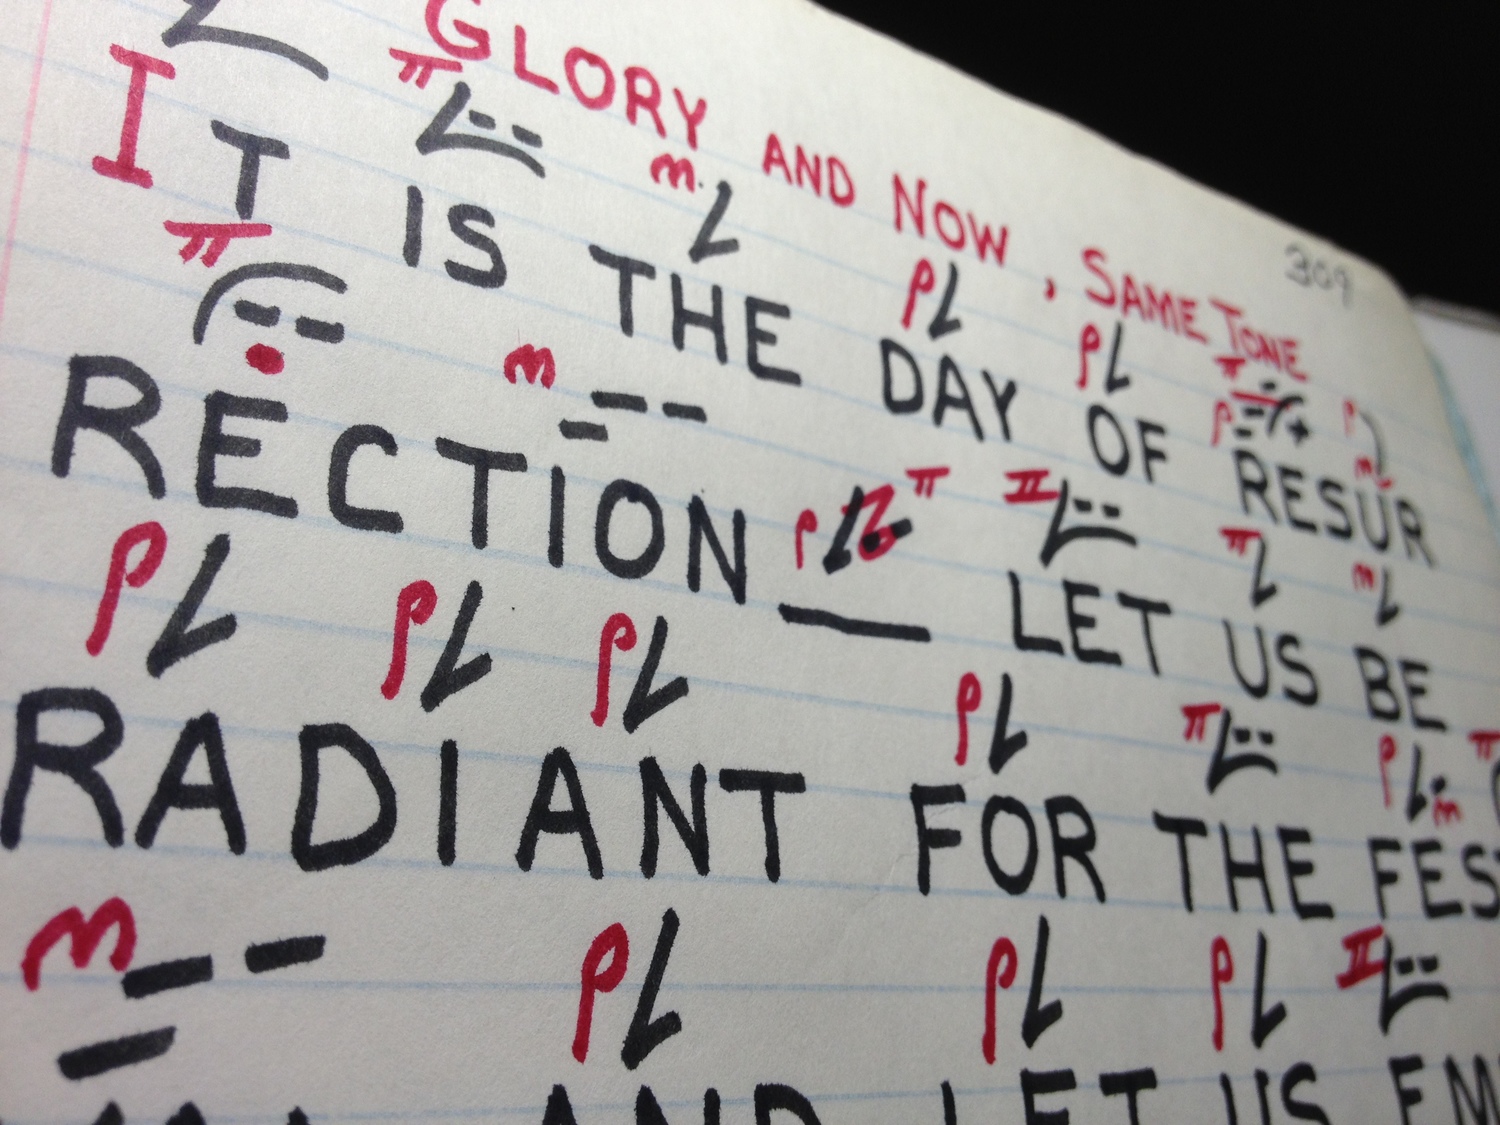 GLORY AND NOW, SAME TONE 309
IT IS THE DAY OF RESUR
RECTION LET US BE
RADIANT FOR THE FEST
AND LET US EM